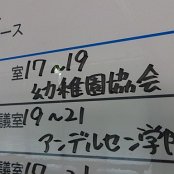 ース
室 17〜19
幼稚園協会
議室 19〜21
アンデルセン学